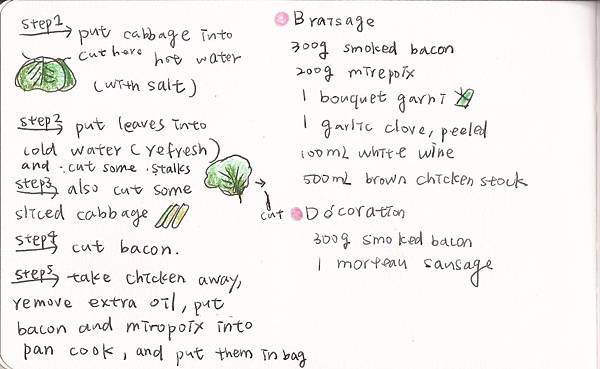 step1 put cabbage into
cut here hot water
(with salt)
step2 put leaves into
cold water (refresh)
and cut some stalks
step3 also cut some
sliced cabbage
cut
step4 cut bacon.
step5 take chicken away,
remove extra oil, put
bacon and miropoix into
pan cook, and put them in bag
Braisage
300g smoked bacon
200g mirepoix
1 bouquet garni
1 garlic clove, peeled
100mL white wine
500mL brown chicken stock
Décoration
300g smoked bacon
1 morteau sausage